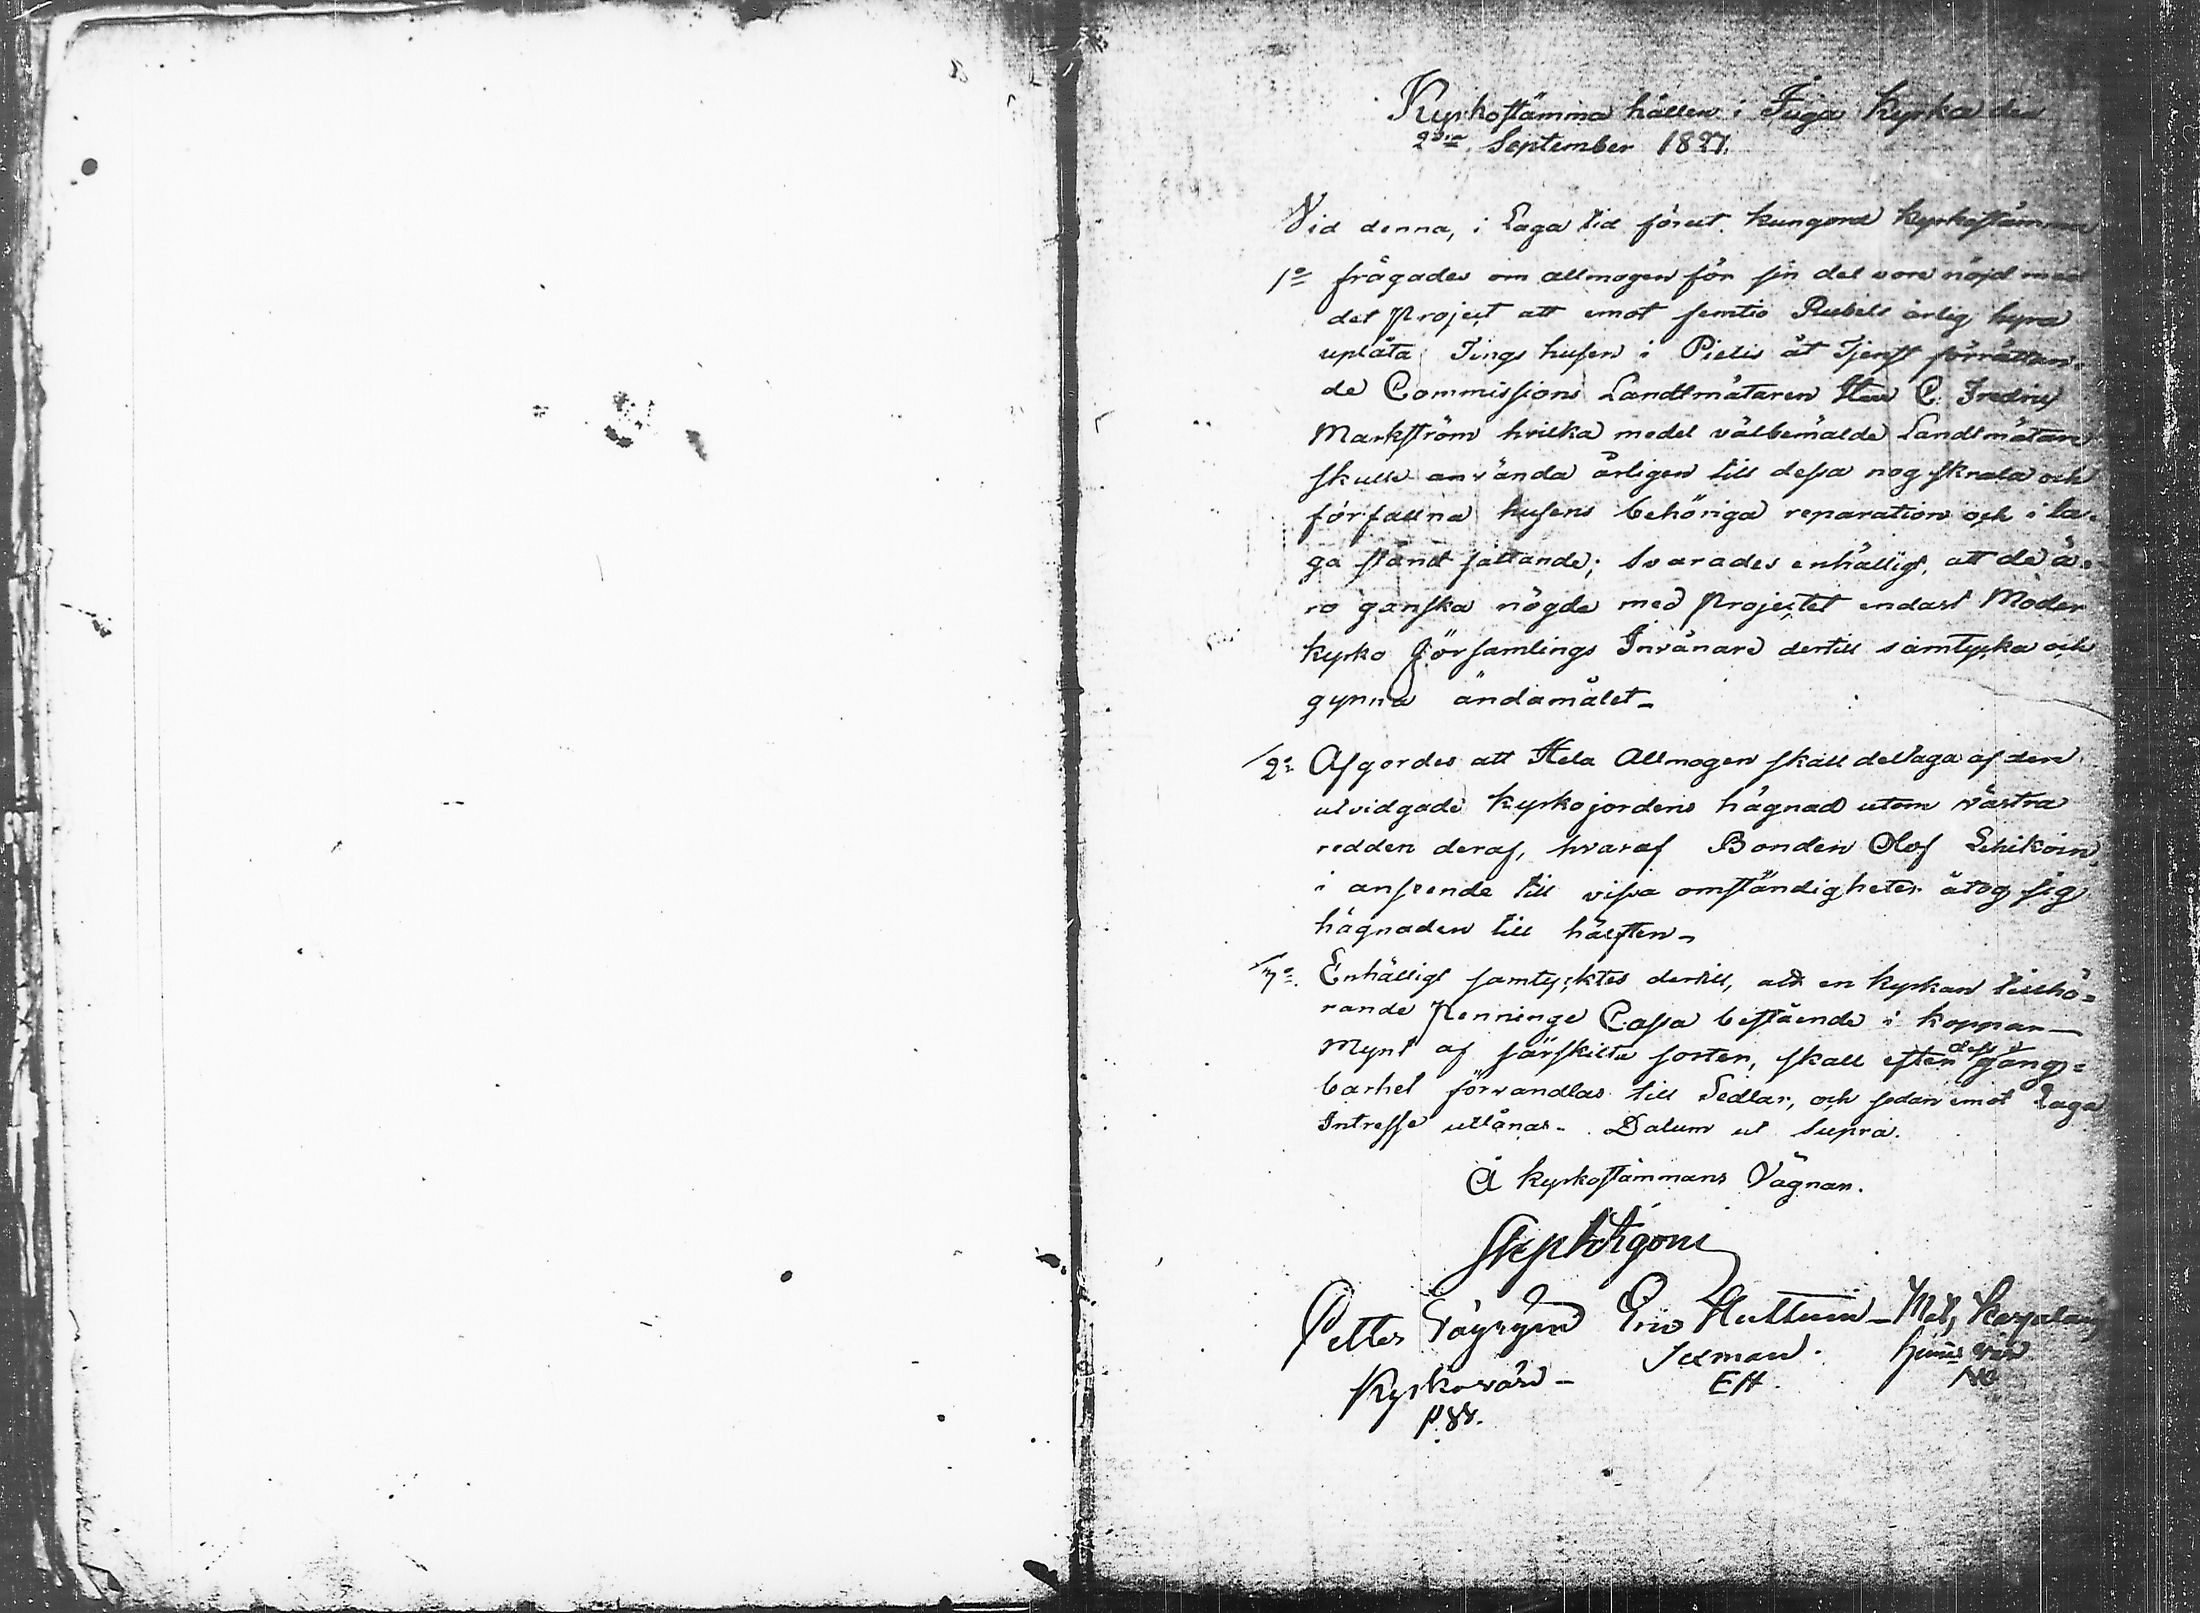 Kyrkostämma hållen i Juga Kyrka den
2dra September 1827.
Vid denna, i Laga tid förut kungjord Kyrkostämma
1o frågades om allmogen för sin del vore nöjd med
det Project att emot femtio Rubels årlig hyra
uplåta Tings husen i Pielis åt Tjenst förrättan-
de Commissions Landtmätaren Herr C. Fredric
Markström hvilka medel välbemälde Landtmätare
skulle använda årligen till dessa nog skrala och
förfallna husens behöriga reparation och i la-
ga stånd sättande; Svarades enhälligt, att de ä-
ro ganska nögde med Projectet endast Moder
kyrko Församlings Invånare dertill samtycka och
gynna ändamålet_
2o Afgordes att Hela Allmogen skall deltaga af den
utvidgade Kyrkojordens hägnad utom västra
redden deraf, hvaraf Bonden Olof Lehikoin,
i anseende till vissa omständigheter åtog sig
hägnaden till hälften_
3o. Enhälligt samtycktes dertill, att en Kyrkan tillhö=
rande Penninge Cassa bestående i koppar_
Mynt af särskilta sorter, skall efter dess gång=
barhet förvandlas till Sedlar, och sedan emot Laga
Intresse utlånas_ Datum ut Supra.
Å Kyrkostämmans Vägnar.
Petter Eric Huttuin_ Mat,
Kyrkovärd_ Sexman.
EH.